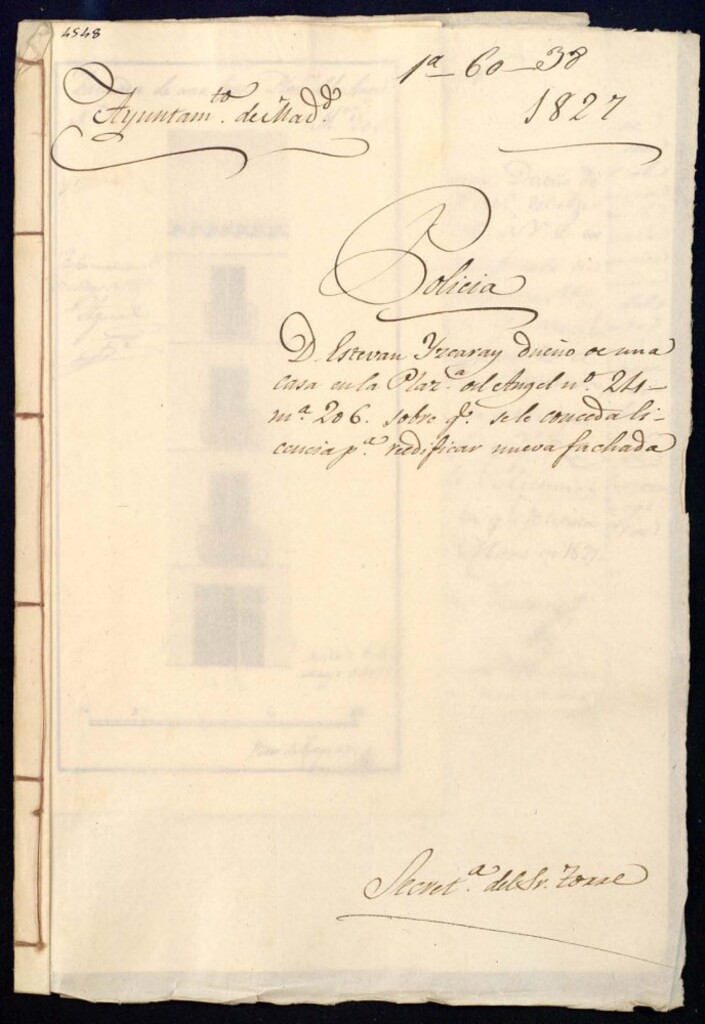 4548
1ª-60-38
Ayuntam.to de Mad.d
1827
Policia
D. Estevan Yzcaray dueño de una
casa en la Plaz.a del Angel nº. 24-
m.a 206. sobre q.e se le conceda li-
cencia p.a redificar nueva fachada
Secret.a del Sr. Torre